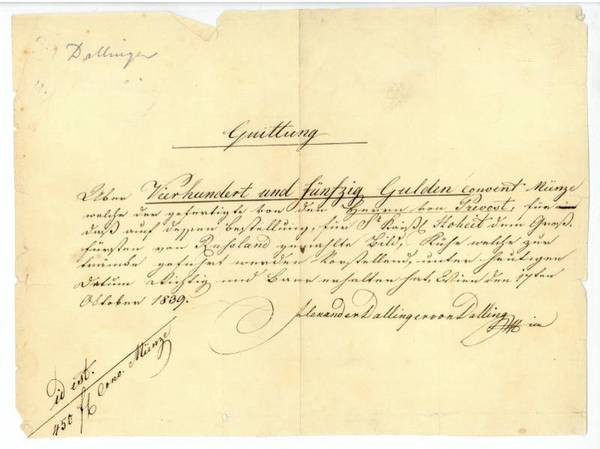 Dallinger
Quittung
Über Vierhundert und fünfzig Gulden convent. Münze
welche der gefertigte von dem Herrn von Prevost, für
daß auf dessen bestellung, für Sr Kaißl. Hoheit dem Groß
fürsten von Rußland gemahlte Bild, Kühe welche zur
tränke geführt werden Vorstellend, unter heutigen
Datum Richtig und Baar erhalten hat. Wien den 17ten
October 1839.
Alexander Dallinger von Dalling
id est.
450 f Conv. Münze